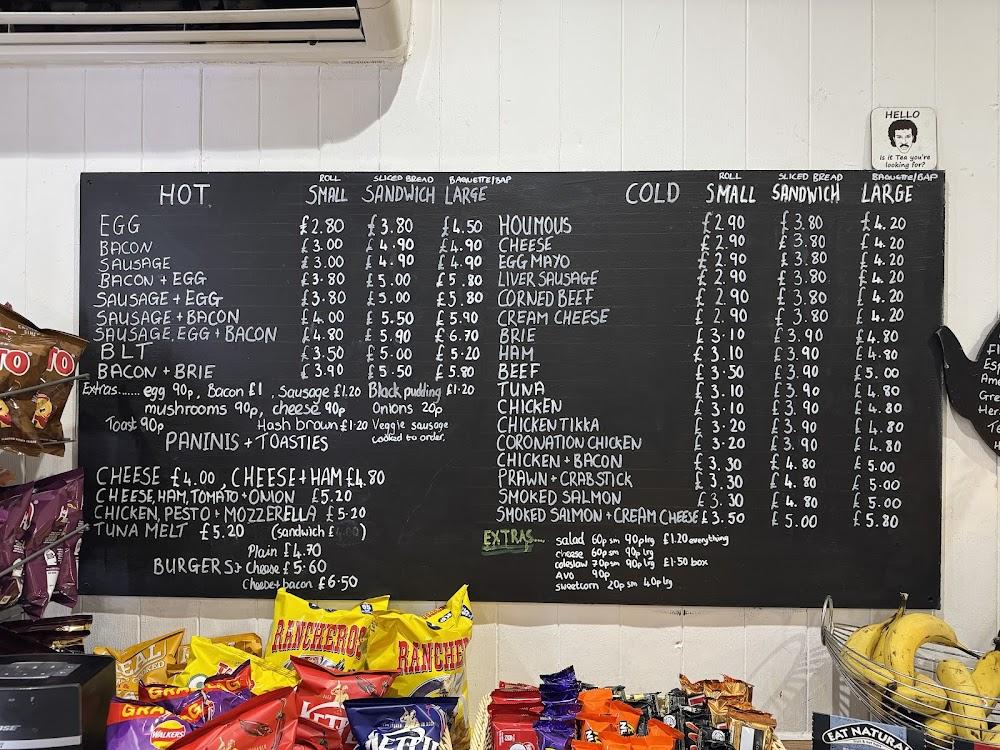 HELLO
is it Tea you're
looking for?
ROLL SLICED BREAD BAGUETTE/BAP
HOT SMALL SANDWICH LARGE
EGG £2.80 £3.80 £4.50
BACON £3.00 £4.90 £4.90
SAUSAGE £3.00 £4.90 £4.90
BACON + EGG £3.80 £5.00 £5.80
SAUSAGE + EGG £3.80 £5.00 £5.80
SAUSAGE + BACON £4.00 £5.50 £5.90
SAUSAGE, EGG + BACON £4.80 £5.90 £6.70
BLT £3.50 £5.00 £5.20
BACON + BRIE £3.90 £5.50 £5.80
Extras...... egg 90p, Bacon £1, Sausage £1.20 Black pudding £1.20
mushrooms 90p, cheese 90p Onions 20p
Toast 90p Hash brown £1.20 Veggie sausage
cooked to order.
PANINIS + TOASTIES
CHEESE £4.00, CHEESE + HAM £4.80
CHEESE, HAM, TOMATO + ONION £5.20
CHICKEN, PESTO + MOZZERELLA £5.20
TUNA MELT £5.20 (sandwich £4.00)
Plain £4.70
BURGERS Cheese £5.60
Cheese + bacon £6.50
ROLL SLICED BREAD BAGUETTE/BAP
COLD SMALL SANDWICH LARGE
HOUMOUS £2.90 £3.80 £4.20
CHEESE £2.90 £3.80 £4.20
EGG MAYO £2.90 £3.80 £4.20
LIVER SAUSAGE £2.90 £3.80 £4.20
CORNED BEEF £2.90 £3.80 £4.20
CREAM CHEESE £2.90 £3.80 £4.20
BRIE £3.10 £3.90 £4.80
HAM £3.10 £3.90 £4.80
BEEF £3.50 £3.90 £5.00
TUNA £3.10 £3.90 £4.80
CHICKEN £3.10 £3.90 £4.80
CHICKEN TIKKA £3.20 £3.90 £4.80
CORONATION CHICKEN £3.20 £3.90 £4.80
CHICKEN + BACON £3.30 £4.80 £5.00
PRAWN + CRABSTICK £3.30 £4.80 £5.00
SMOKED SALMON £3.30 £4.80 £5.00
SMOKED SALMON + CREAM CHEESE £3.50 £5.00 £5.80
EXTRAS.... salad 60p sm 90p lrg £1.20 everything
cheese 60p sm 90p lrg
coleslaw 70p sm 90p lrg £1.50 box
AVO 90p
sweetcorn 20p sm 40p lrg
RANCHEROS
RANCHE
WALKERS
EAT NATURAL